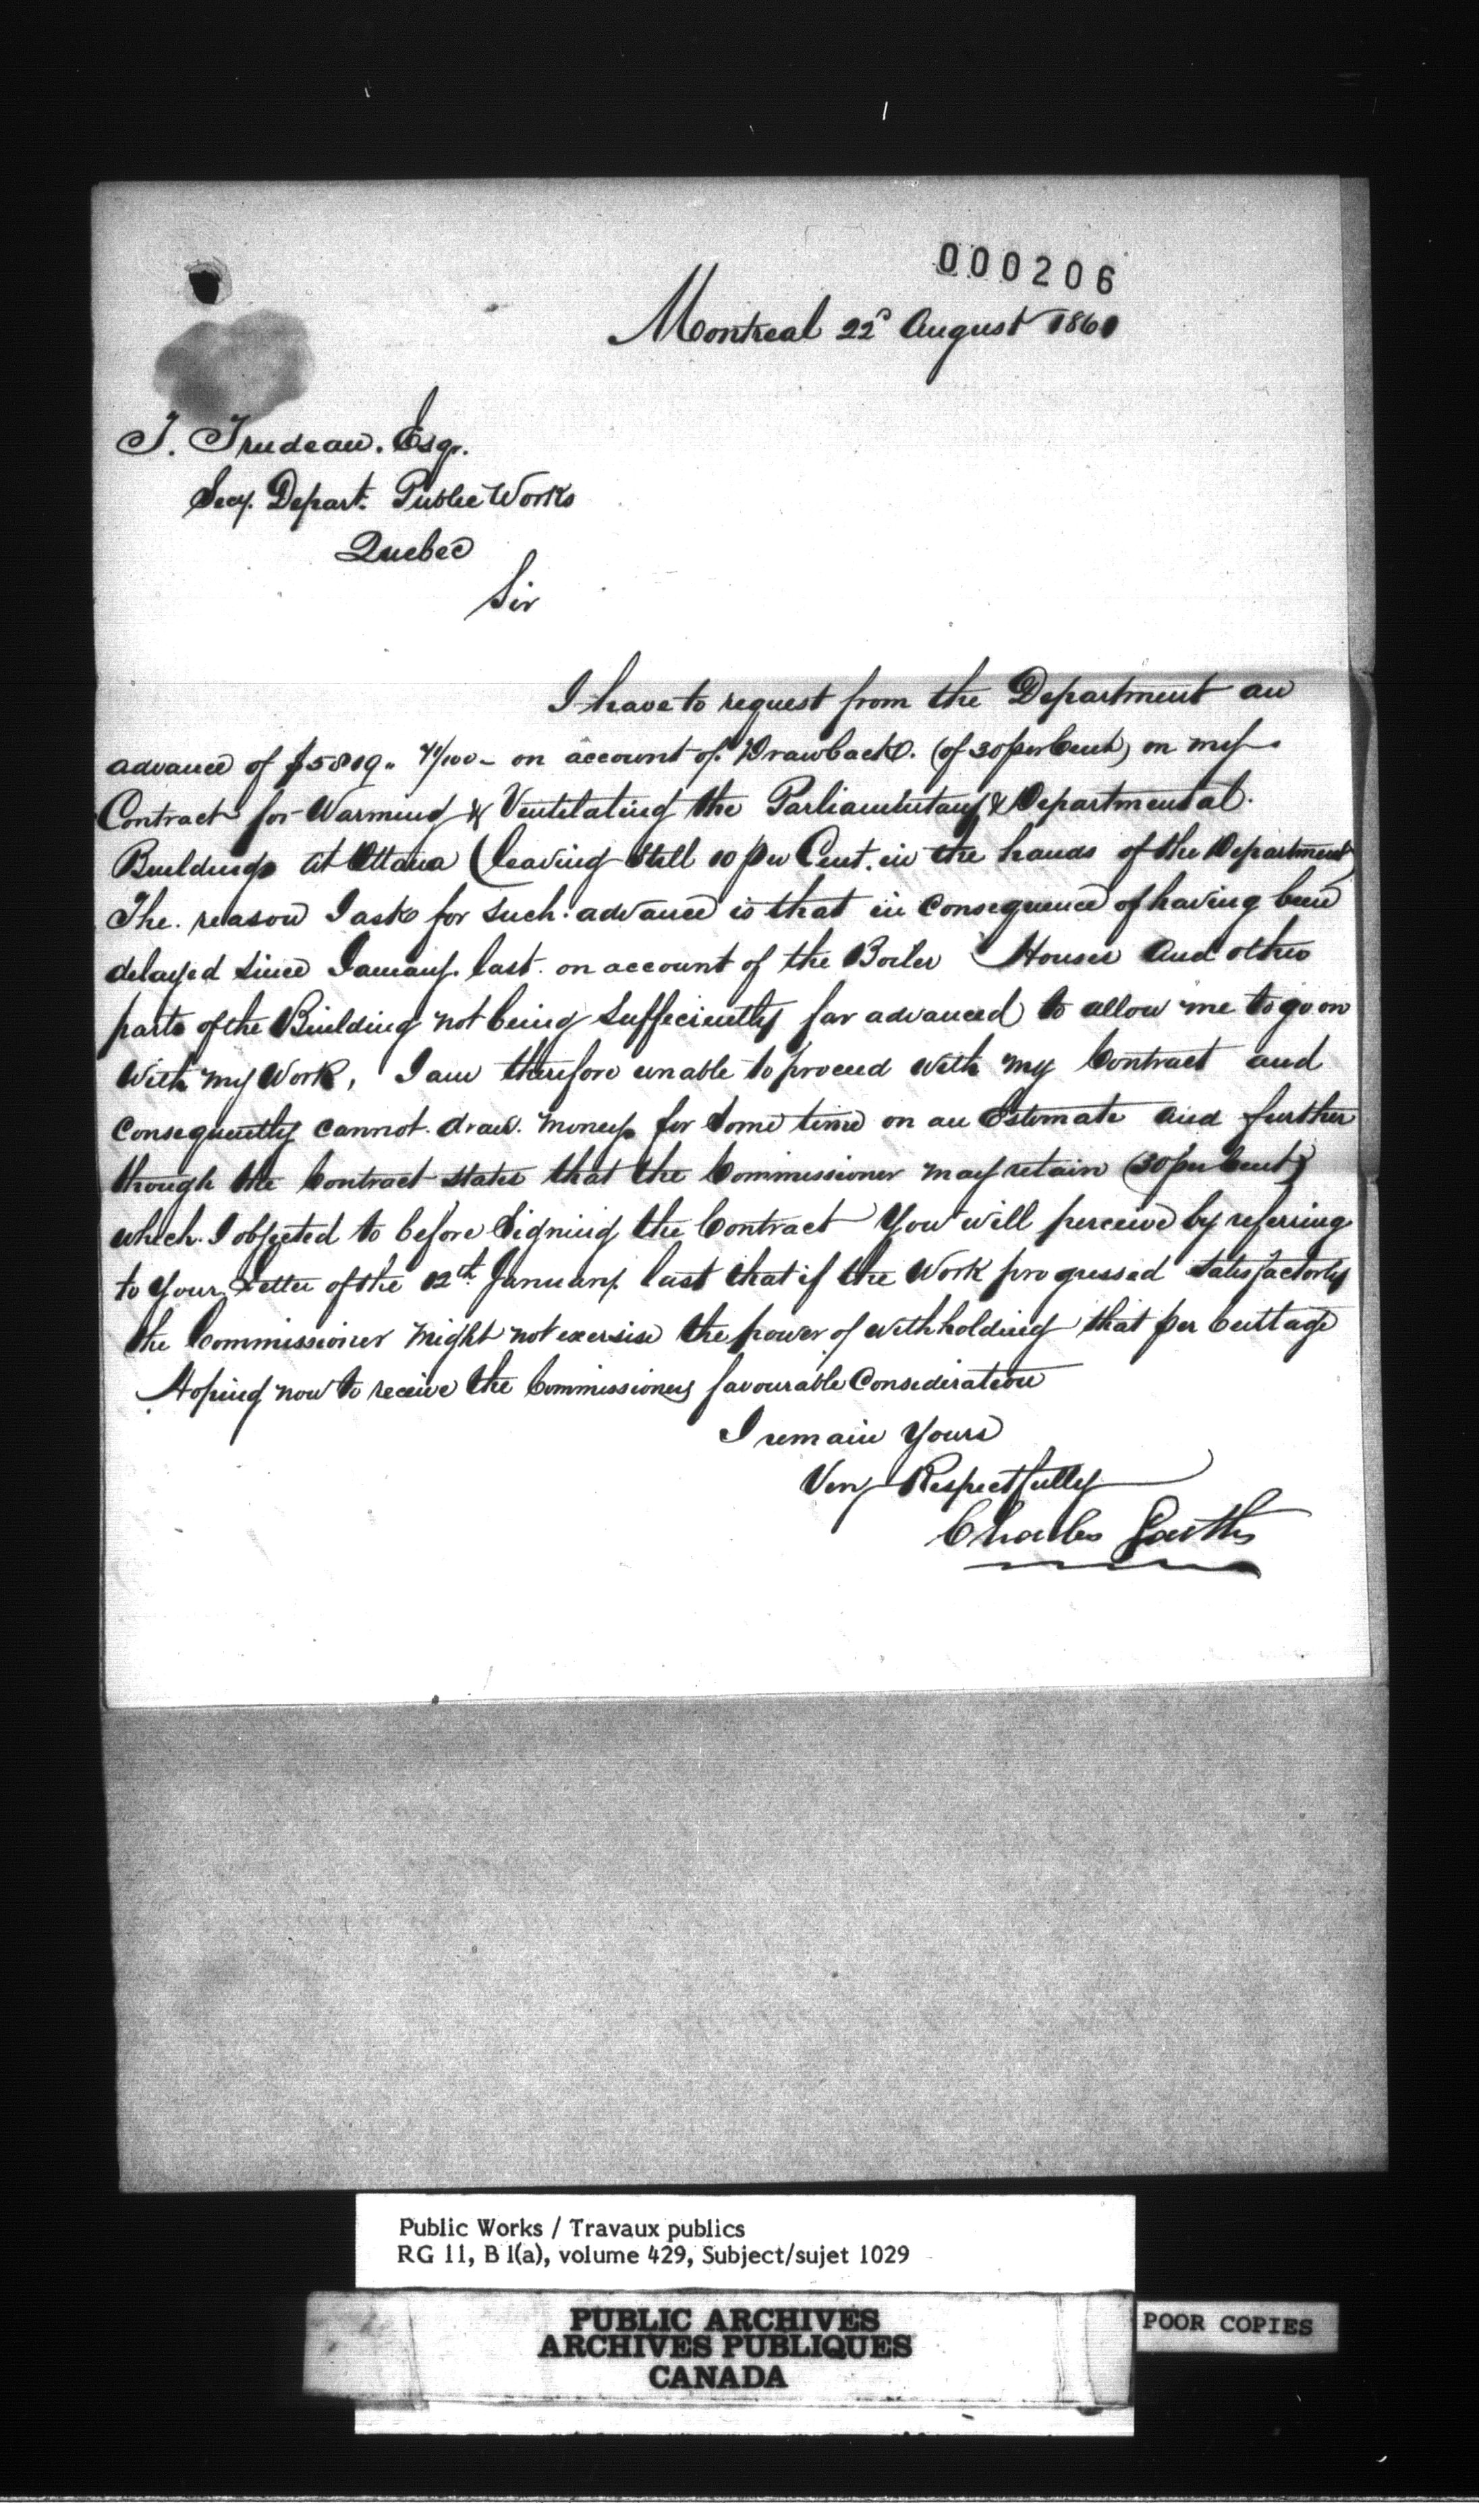 000206
Montreal 22d August 1861
T. Trudeau. Esqr.
Secy. Depart. Public Works
Quebec
Sir
I have to request from the Department an
advance of $5819,, 71/100 - on account of Drawback. (of 30 per Cent) on my
Contract for Warming & Ventilating the Parliamentary & Departmental.
Buildings at Ottawa (leaving still 10 per Cent. in the hands of the Department)
The reason I ask for such advance is that in consequence of having been
delayed since January last on account of the Boiler Houses and other
parts of the Building not being sufficiently far advanced to allow me to go on
with my Work, I am therefore unable to proceed with my Contract and
consequently cannot draw money for some time on an Estimate and further
though the Contract states that the Commissioner may retain (30 per Cent)
which I objected to before Signing the Contract You will perceive by referring
to Your Letter of the 12th January last that if the Work progressed satisfactorly
the Commissioner might not exersise the power of withholding that per Centage
Hoping now to receive the Commissioners favourable Consideration
I remain Yours
Very Respectfully
Charles Garth
Public Works / Travaux publics
RG 11, B 1(a), volume 429, Subject/sujet 1029
PUBLIC ARCHIVES
ARCHIVES PUBLIQUES
CANADA
POOR COPIES